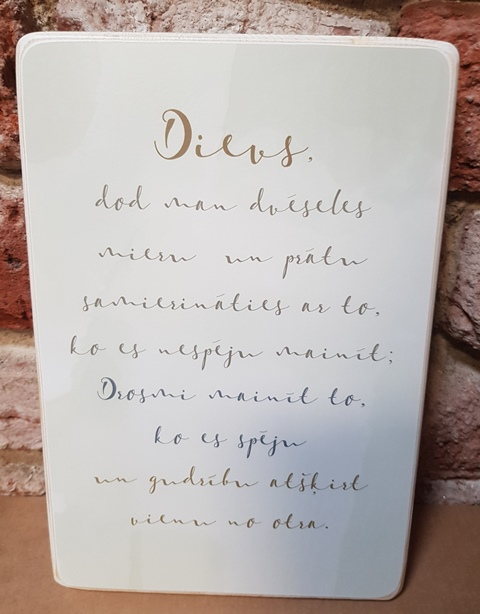 Dievs,
dod man dvēseles
mieru un prātu
samierināties ar to,
ko es nespēju mainīt;
Drosmi mainīt to,
ko es spēju
un gudrību atšķirt
vienu no otra.